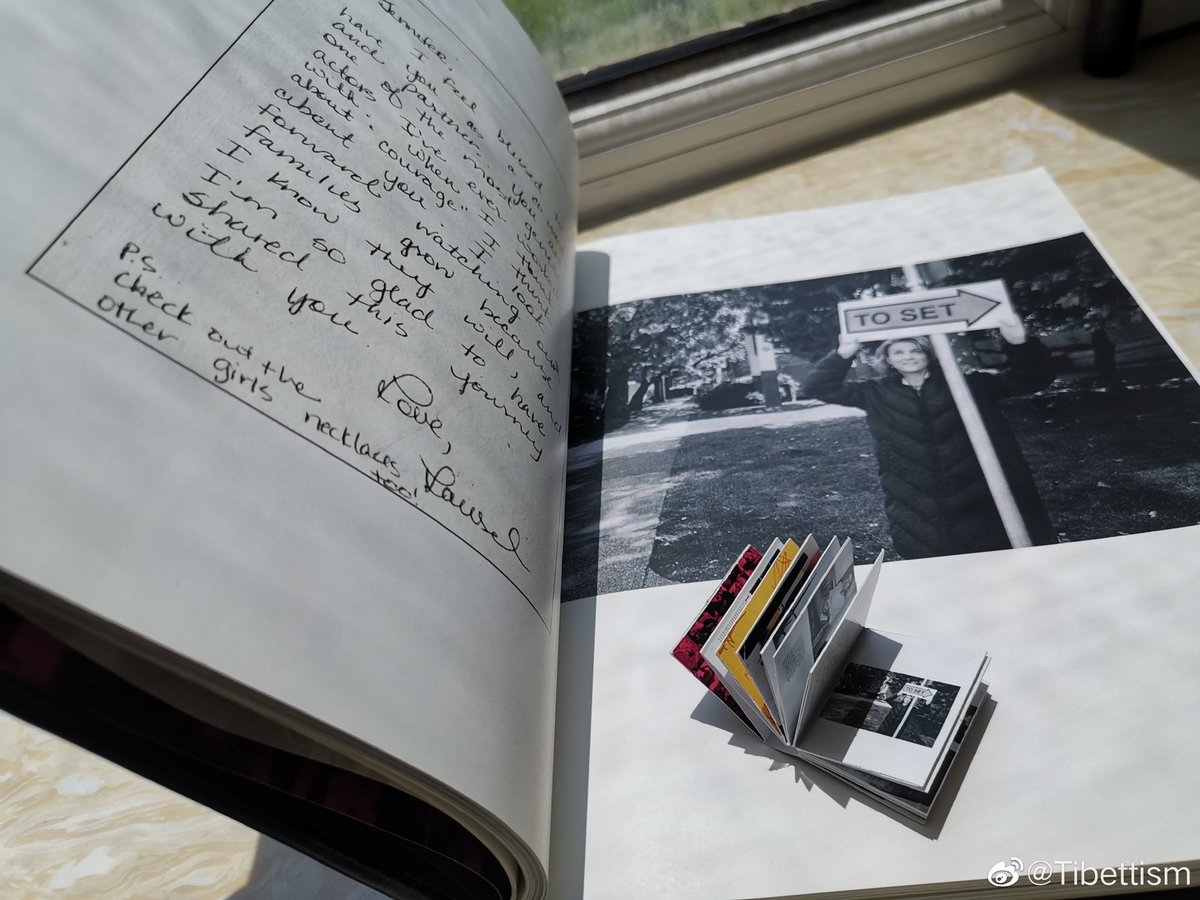 Jennifer.
I feel blessed
have you as a
and partner. You
one of the most
actors I've ever
with. When I think
about "courage" I think
about you. I look
forward watching our
families grow because
I know they will, and
I'm so glad to have
shared this journey
with you.
Love,
Laurel
P.S.
check out the
other girls necklaces
too!
TO SET
TO SET
@Tibettism